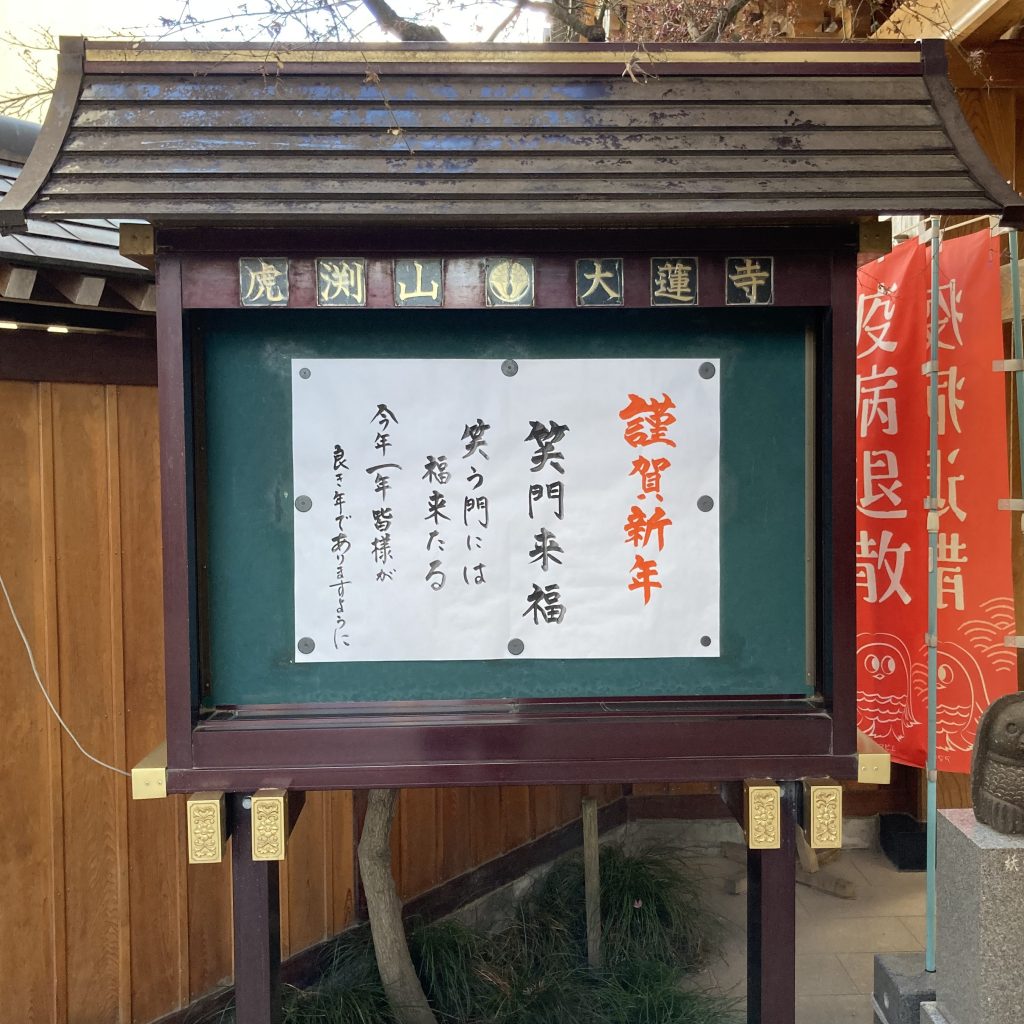 虎渕山 大蓮寺
謹賀新年
笑門来福
笑う門には
福来たる
今年一年皆様が
良き年でありますように
疫病退散
疫病退散